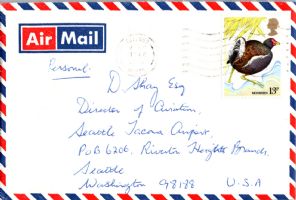 Air Mail
MOORHEN 13P
Personal.
D. Shay Esq
Director of Aviation,
Seattle Tacoma Airport,
POB 6206, Riverton Heights Branch,
Seattle
Washington 98188 U.S.A